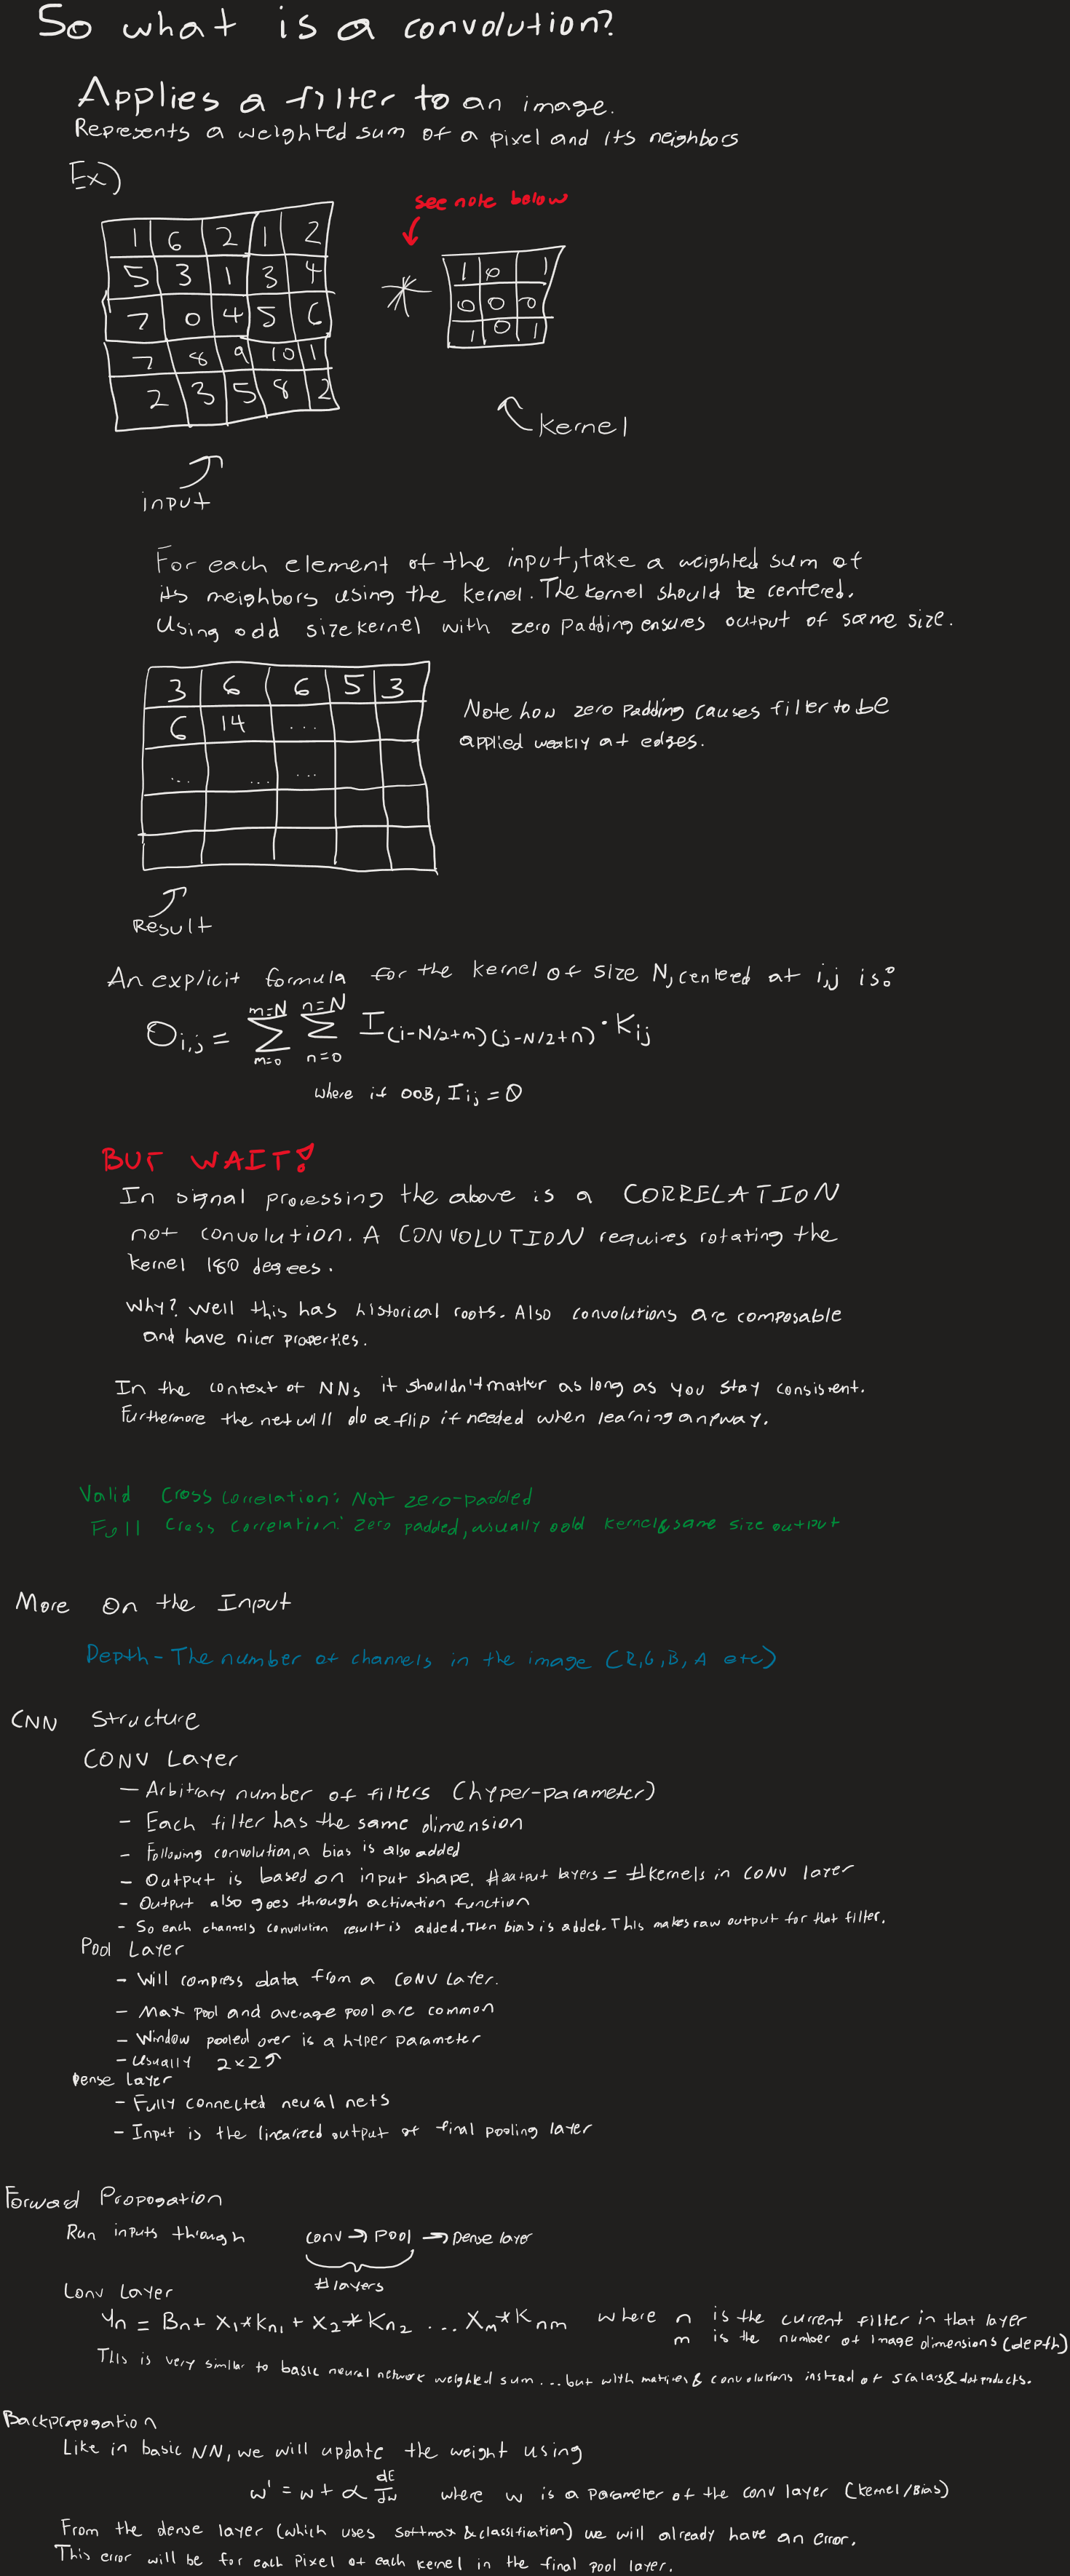 So what is a convolution?
Applies a filter to an image.
Represents a weighted sum of a pixel and its neighbors
Ex)
see note below
1 6 2 1 2
5 3 1 3 4
7 0 4 5 6
7 8 9 10 1
2 3 5 8 2
*
1 0 1
0 0 0
1 0 1
Kernel
input
For each element of the input, take a weighted sum of
its neighbors using the kernel. The kernel should be centered.
Using odd size kernel with zero padding ensures output of same size.
3 6 6 5 3
6 14 ...
... ... ...
Note how zero padding causes filter to be
applied weakly at edges.
Result
An explicit formula for the kernel of size N, centered at i,j is:
O_{i,j} = Σ_{m=0}^{m=N} Σ_{n=0}^{n=N} I_{(i-N/2+m)(j-N/2+n)} · K_{ij}
where if OOB, I_{ij} = 0
BUT WAIT!
In signal processing the above is a CORRELATION
not convolution. A CONVOLUTION requires rotating the
kernel 180 degees.
Why? Well this has historical roots. Also convolutions are composable
and have nicer properties.
In the context of NNs it shouldn't matter as long as you stay consistent.
Furthermore the net will do a flip if needed when learning anyway.
Valid Cross Correlation: Not zero-padded
Full Cross Correlation: Zero padded, usually odd kernel & same size output
More On the Input
Depth - The number of channels in the image (R,G,B,A etc)
CNN Structure
CONV Layer
- Arbitrary number of filters (hyper-parameter)
- Each filter has the same dimension
- Following convolution, a bias is also added
- Output is based on input shape. #output layers = #kernels in CONV layer
- Output also goes through activation function
- So each channels convolution result is added. Then bias is added. This makes raw output for that filter.
Pool Layer
- Will compress data from a CONV Layer.
- Max pool and average pool are common
- Window pooled over is a hyper parameter
- Usually 2x2
Dense Layer
- Fully connected neural nets
- Input is the linearized output of final pooling layer
Forward Propogation
Run inputs through Conv → Pool → Dense layer
# layers
Conv Layer
Yn = Bn + X1*Kn1 + X2*Kn2 ... Xm*Knm where n is the current filter in that layer
m is the number of image dimensions (depth)
This is very similar to basic neural network weighted sum...but with matrices & convolutions instead of scalars & dot products.
Backpropogation
Like in basic NN, we will update the weight using
w' = w + α dE/dw where w is a parameter of the conv layer (kernel/Bias)
From the dense layer (which uses softmax & classification) we will already have an error.
This error will be for each pixel of each kernel in the final pool layer.